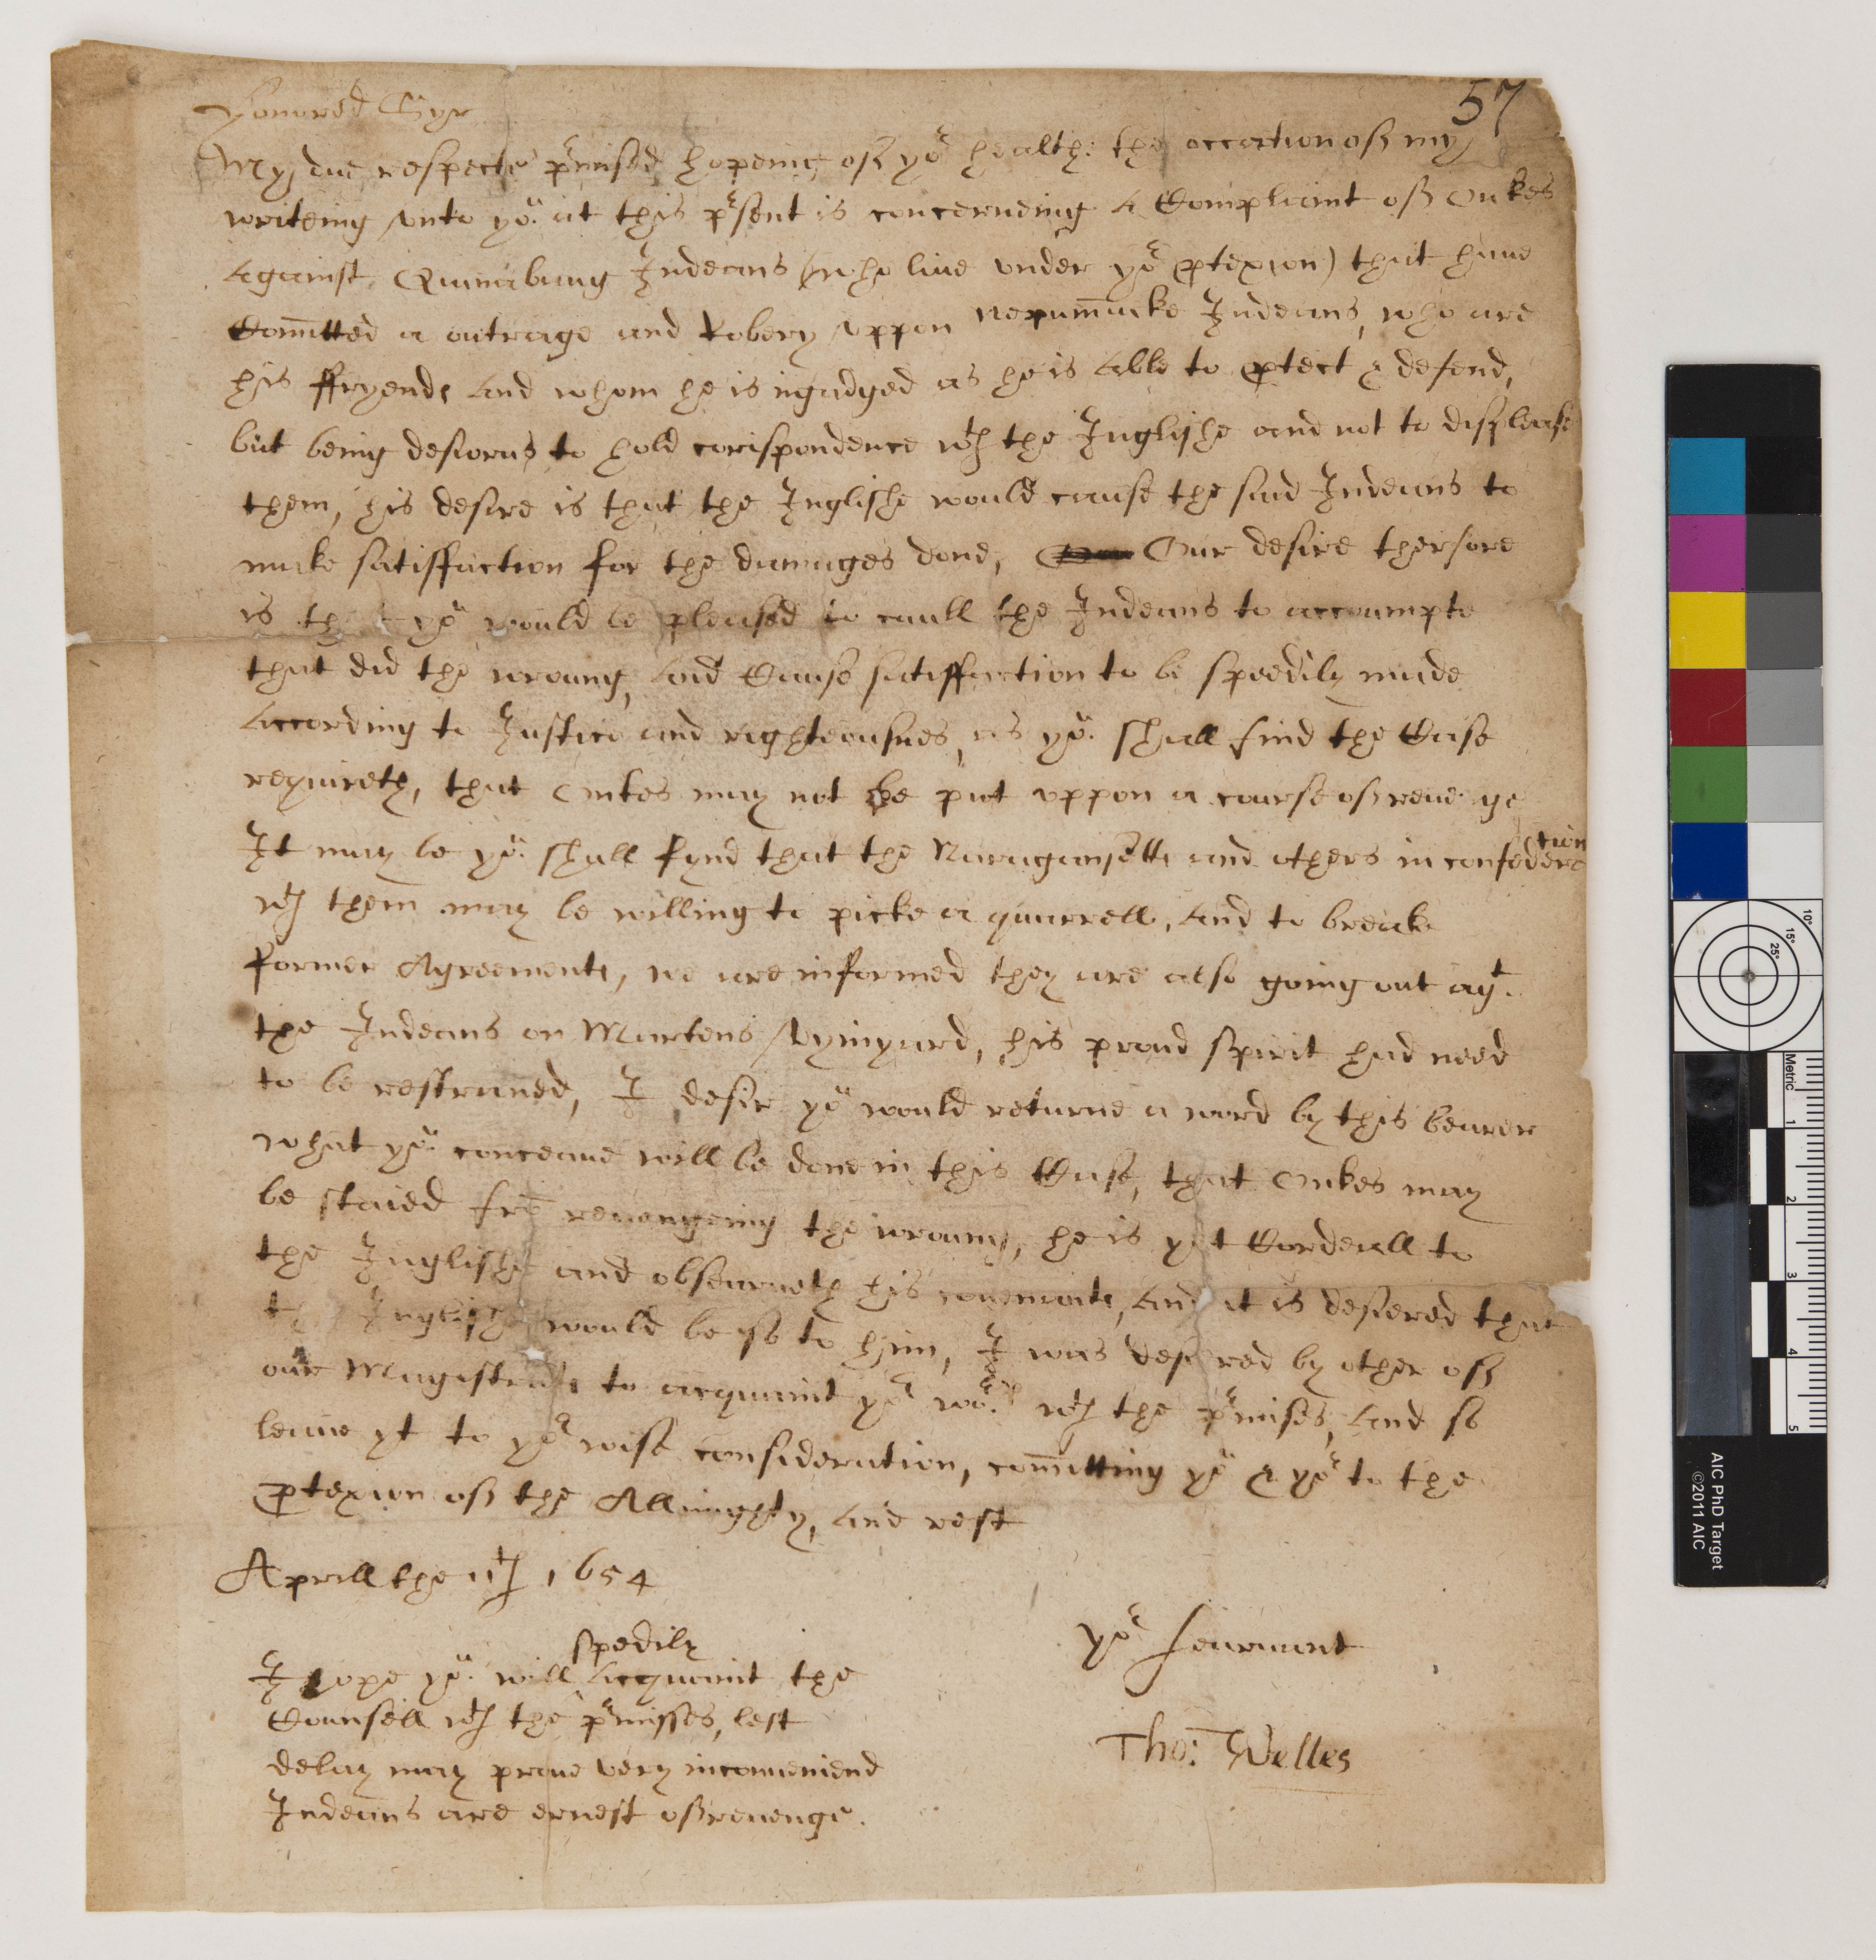 57
Honored Syr
My due respects p^rmised, hopeing off yo^r health: the occation off my
writeing vnto yo^u at this p^rsent is concerneing a Complaint off Onkes
against Quinabaug Indeans (who liue vnder yo^r ptexion) that haue
Com̄itted a outrage and Robery vppon Nepum̄uke Indeans, who are
his ffryends and whom he is ingadged as he is able to ptect & defend,
but being desiorus to hold corispondence wth the Inglishe and not to displease
them, his desire is that the Inglishe would cause the said Indeans to
make satisffaction for the damages done, Our desire therfore
is that yo^u would be pleased to caull the Indeans to accoumpte
that did the wroung, and Cause satisffaction to be speedily made
according to Justice and righteousnes, as yo^u shall find the Case
requireth, that Onkes may not be put vppon a course off reuenge
It may be yo^u shall fynd that the Naragansetts and others in confederation
wth them may be willing to picke a quarrell, and to breake
former Agreements, we are informed they are also going out ag^t.
the Indeans on Martens Vynyard, his proud spirit had need
to be restraned, I desir yo^u would returne a word by this bearer
what yo^u conceaue will be done in this Case, that Onkes may
be staied frō reuengeing the wroung, he is yet Cordeall to
the Inglishe and obsearueth his couenants, and it is desiered that
the Inglishe would be so to him, I was desired by other off
our Magistrats to acquaint yo^r wo^r. wth the p^rmises, and so
leaue yt to yo^r wise consideration, com̄itting yo^u & yo^rs to the
ptexion off the Allmighty, and rest
Aprill the 11th 1654
yo^r searuant
Tho: Welles
I hope yo^u will spedily acquaint the
Counsell wth the p^rmisses, lest
delay may proue very inconueniend
Indeans are ernest off reuenge.